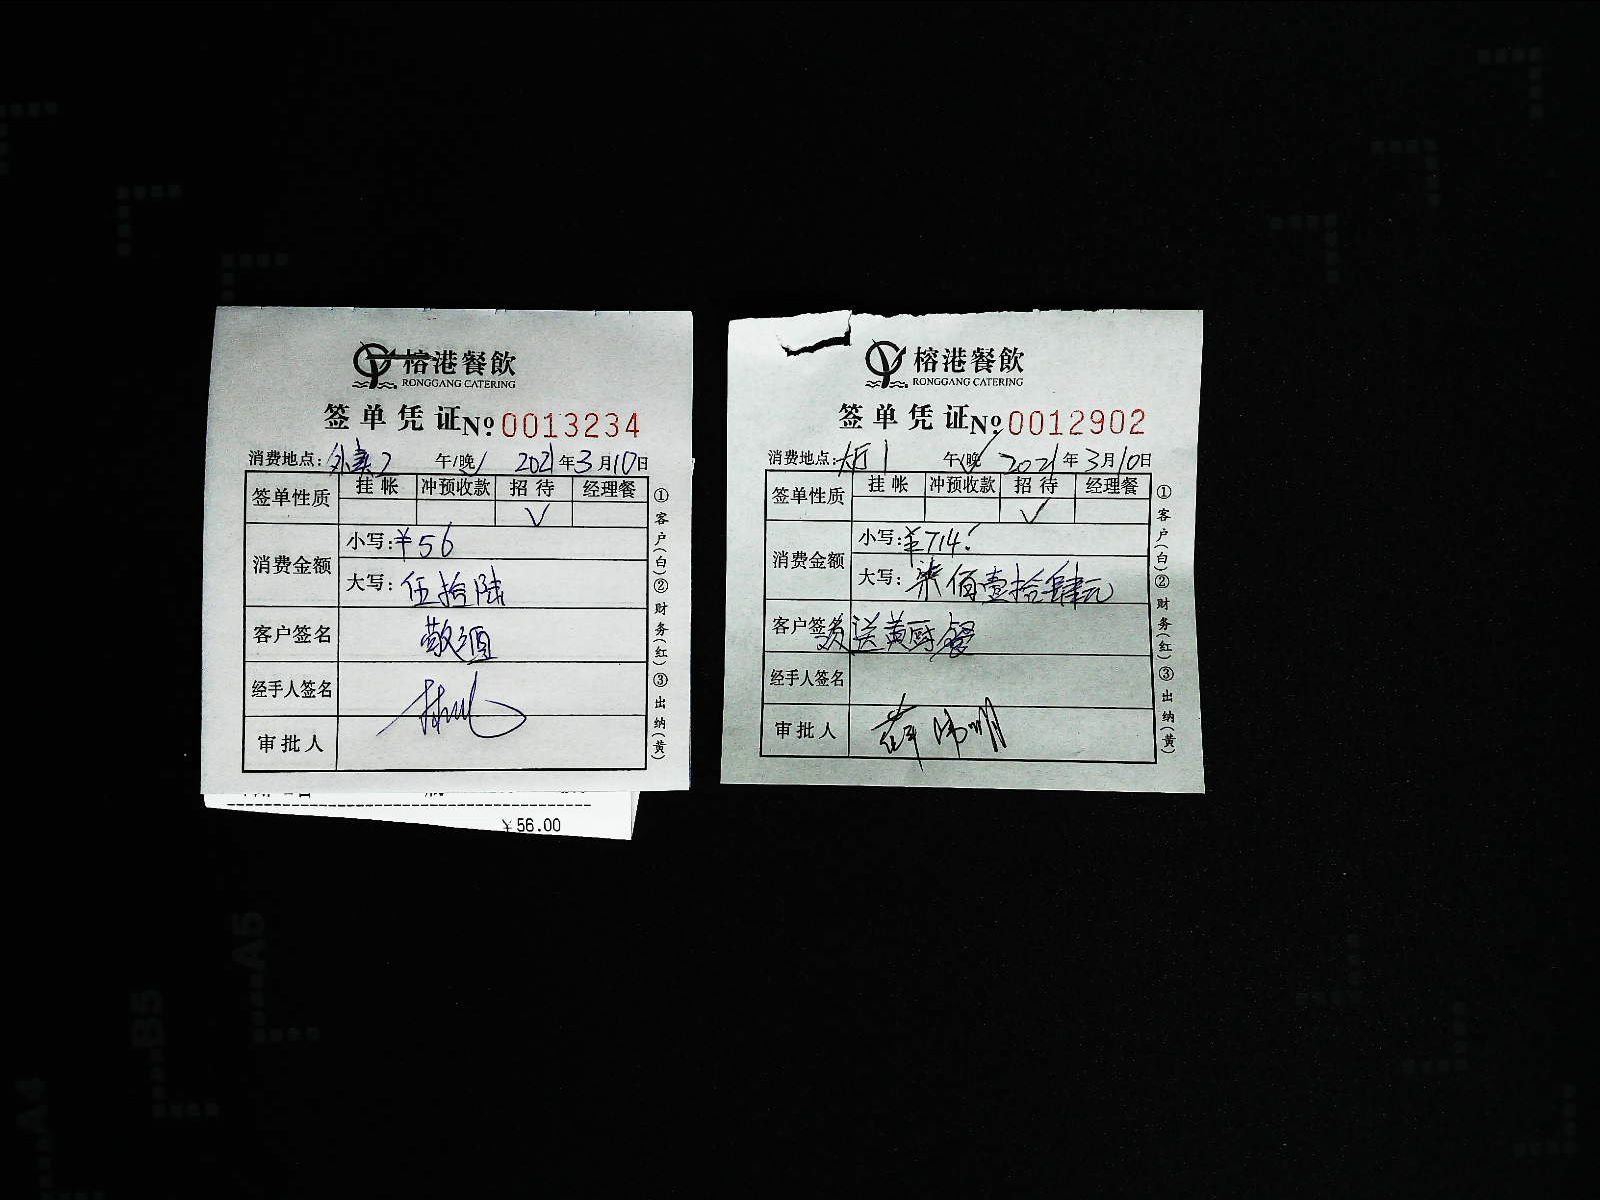 榕港餐飲
RONGGANG CATERING
签单凭证 Nº 0013234
消费地点:外卖2 午/晚√ 2021年3月10日
签单性质 挂帐 冲预收款 招待 经理餐
√
消费金额 小写:¥56
大写:伍拾陆
客户签名 敬酒
经手人签名
审批人
①客户(白)②财务(红)③出纳(黄)
¥56.00
榕港餐飲
RONGGANG CATERING
签单凭证 Nº 0012902
消费地点:大厅1 午/晚 2021年3月10日
签单性质 挂帐 冲预收款 招待 经理餐
√
消费金额 小写:¥714.
大写:柒佰壹拾肆元
客户签名 送黄厨餐
经手人签名
审批人
①客户(白)②财务(红)③出纳(黄)
A5
B5
A4